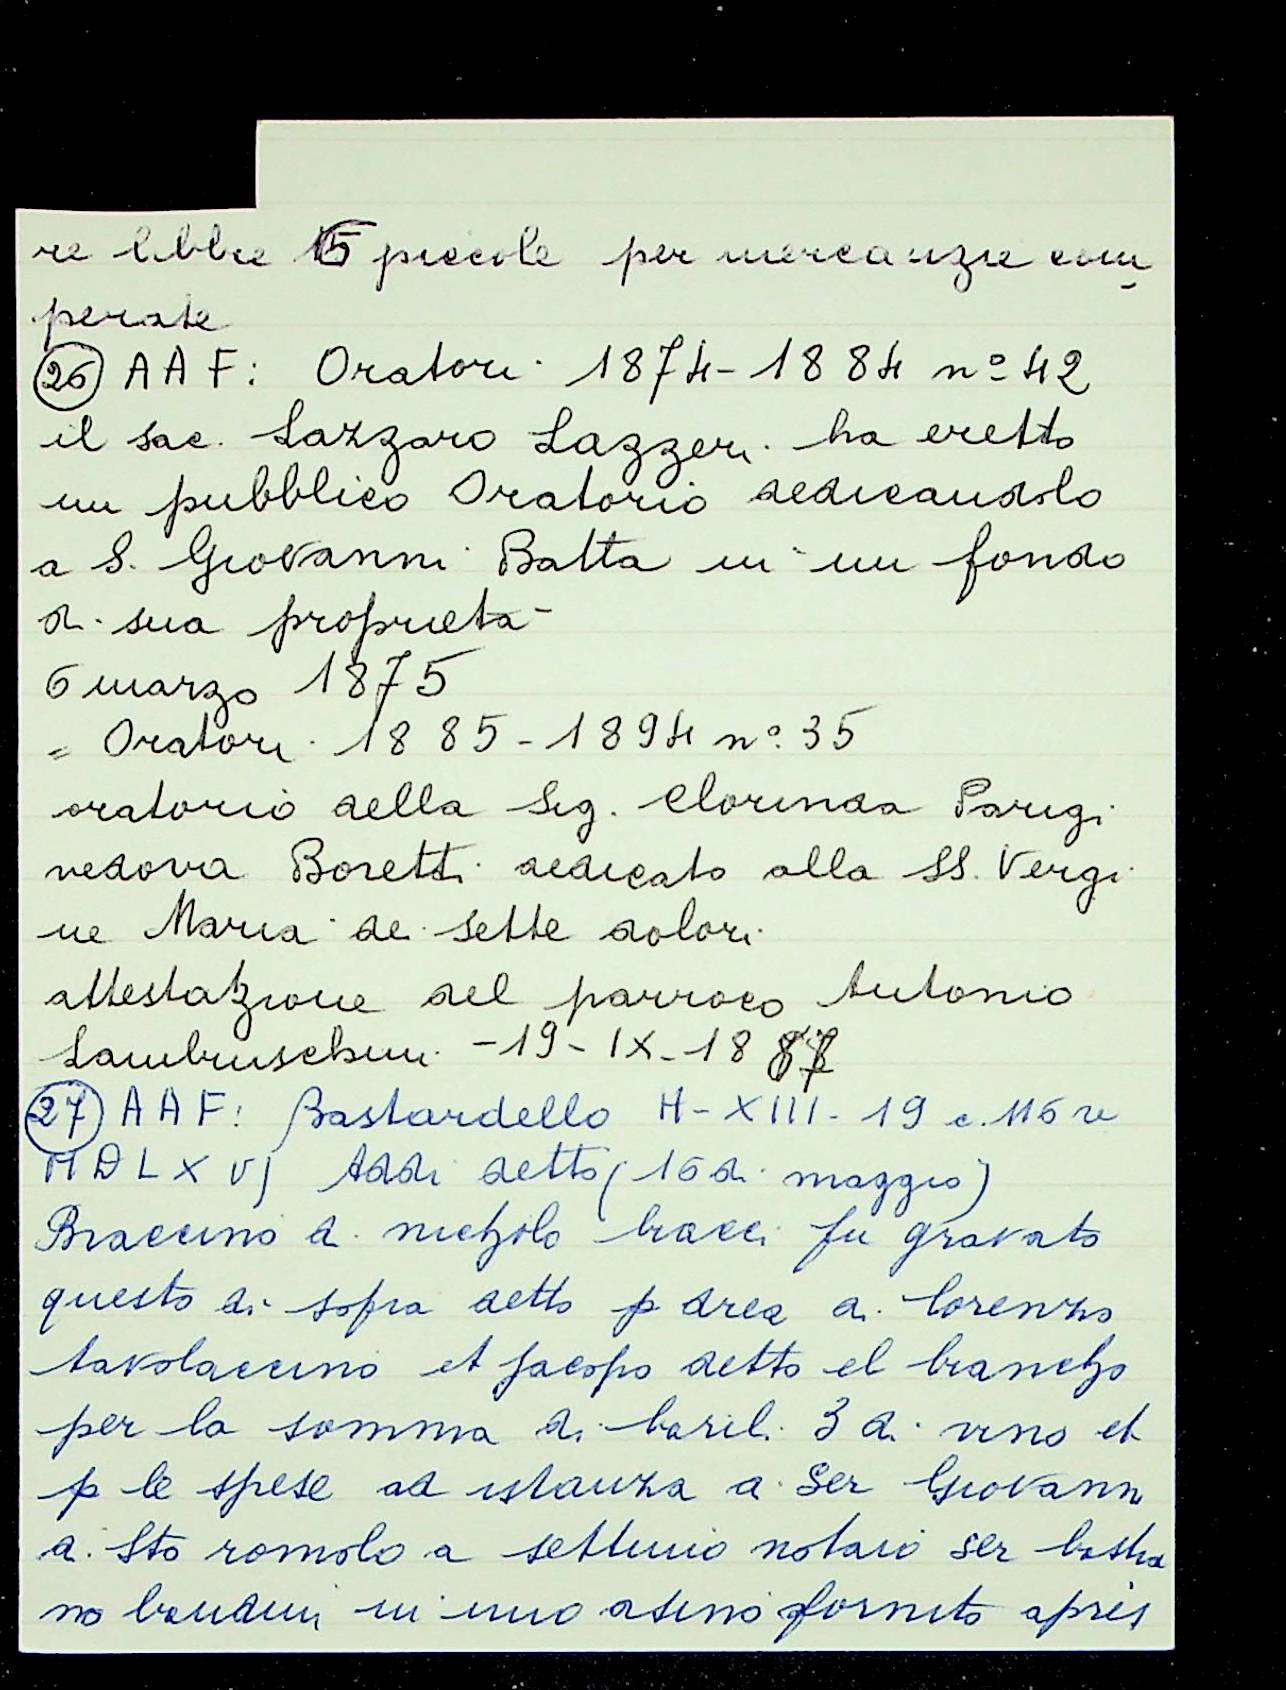 re libbre 15 piccole per mercanzie com
perate
26 AAF: Oratori 1874-1884 nº 42
il sac. Lazzaro Lazzeri ha eretto
un pubblico Oratorio dedicandolo
a S. Giovanni Batta in un fondo
di sua proprietà
6 marzo 1875
= Oratori 1885-1894 nº 35
oratorio della Sig. Clorinda Parigi
vedova Boretti dedicato alla SS. Vergi
ne Maria de sette dolori
attestazione del parroco Antonio
Lambruschini -19-IX-1887
27 AAF: Bastardello H-XIII-19 c.116 v
MDLXVJ Addi detto (16 di maggio)
Braccino di nicholo bracci fu gravato
questo di sopra detto p di lorenzo
tavolaccino et Jacopo detto el brancho
per la somma di barili 3 di vino et
p le spese ad istanza di Ser Giovanni
di Sto romolo a settimo notaio ser bastia
no bandini in uno asino fornito apres